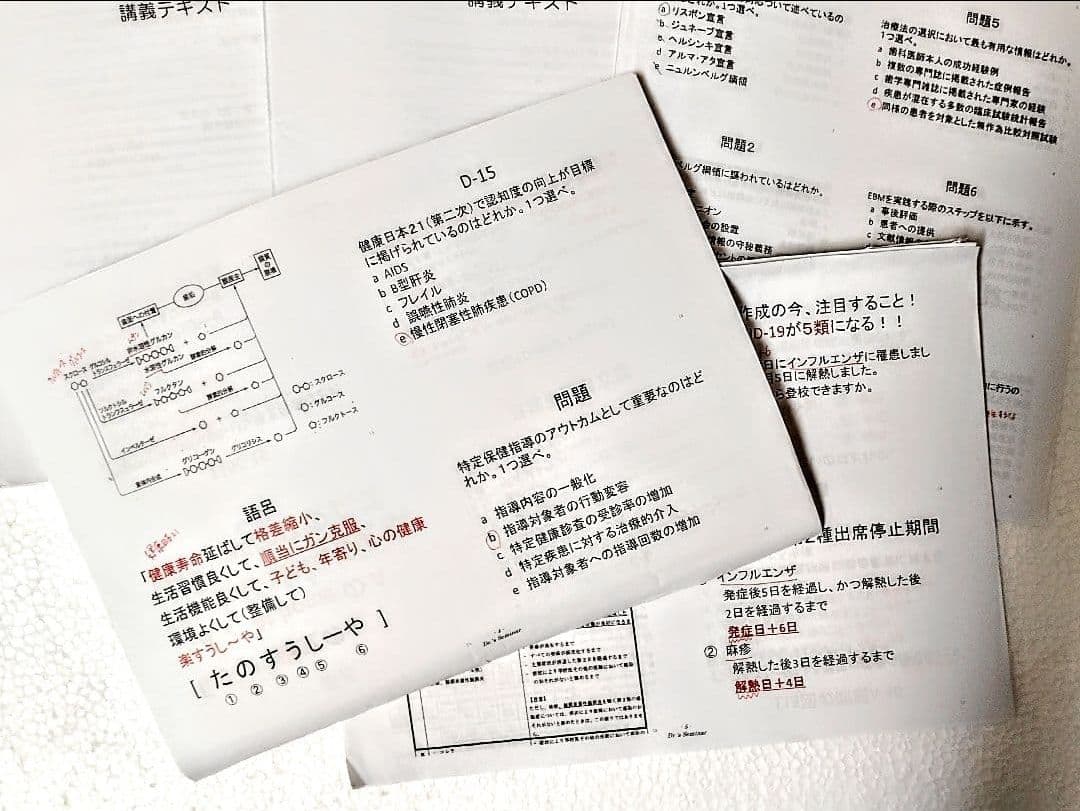 講義テキスト
講義テキスト
ついて述べているの
どれか。1つ選べ。
a リスボン宣言
b. ジュネーブ宣言
c. ヘルシンキ宣言
d アルマ・アタ宣言
e. ニュルンベルグ綱領
問題2
ベルグ綱領に謳われているはどれか。
オン
会の設置
情報の守秘義務
問題5
治療法の選択において最も有用な情報はどれか。
1つ選べ。
a 歯科医師本人の成功経験例
b 複数の専門誌に掲載された症例報告
c 歯学専門雑誌に掲載された専門家の経験
d 疾患が混在する多数の臨床試験統計報告
e 同様の患者を対象とした無作為比較対照試験
問題6
EBMを実践する際のステップを以下に示す。
a 事後評価
b 患者への提供
c 文献情報の
に行うの
D-15
健康日本21(第二次)で認知度の向上が目標
に掲げられているのはどれか。1つ選べ。
a AIDS
b B型肝炎
c フレイル
d 誤嚥性肺炎
e 慢性閉塞性肺疾患(COPD)
スクロース
グルコシル
トランスフェラーゼ
非水溶性グルカン
水溶性グルカン
酵素的分解
フルクトシル
トランスフェラーゼ
フルクタン
酵素的分解
インベルターゼ
菌体内合成
グリコーゲン
グリコリシス
:スクロース
:グルコース
:フルクトース
問題
特定保健指導のアウトカムとして重要なのはど
れか。1つ選べ。
a 指導内容の一般化
b 指導対象者の行動変容
c 特定健康診査の受診率の増加
d 特定疾患に対する治療的介入
e 指導対象者への指導回数の増加
語呂
「健康寿命延ばして格差縮小、
生活習慣良くして、順当にガン克服、
生活機能良くして、子ども、年寄り、心の健康
環境よくして(整備して)
楽すうし~や」
[ たのすうしーや ]
① ② ③ ④ ⑤ ⑥
- 4 -
Dr.'s Seminar
作成の今、注目すること!
D-19が5類になる!!
日にインフルエンザに罹患しまし
月5日に解熱しました。
ら登校できますか。
2種出席停止期間
インフルエンザ
発症後5日を経過し、かつ解熱した後
2日を経過するまで
発症日+6日
② 麻疹
解熱した後3日を経過するまで
解熱日+4日
- 5 -
Dr.'s Seminar